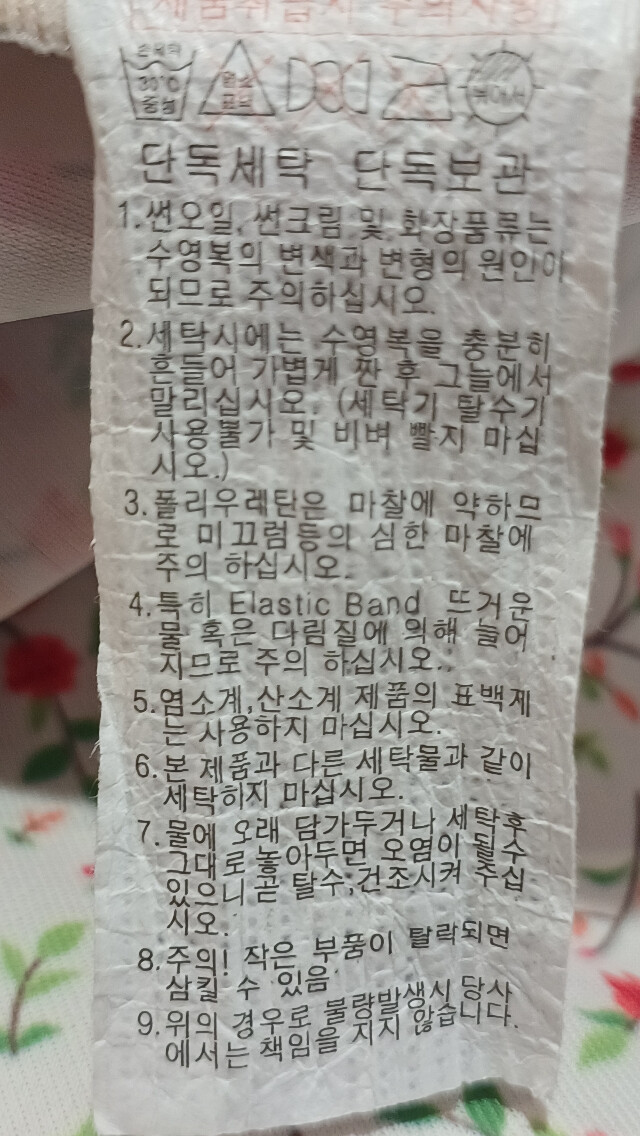 제품취급시 주의사항
손세탁
30℃
중성
염소
표백
뉘어서
단독세탁 단독보관
1.썬오일, 썬크림 및 화장품류는
수영복의 변색과 변형의 원인이
되므로 주의하십시오.
2.세탁시에는 수영복을 충분히
흔들어 가볍게 짠 후 그늘에서
말리십시오. (세탁기 탈수기
사용불가 및 비벼 빨지 마십
시오.)
3.폴리우레탄은 마찰에 약하므
로 미끄럼등의 심한 마찰에
주의 하십시오.
4.특히 Elastic Band 뜨거운
물 혹은 다림질에 의해 늘어
지므로 주의 하십시오.
5.염소계,산소계 제품의 표백제
는 사용하지 마십시오.
6.본 제품과 다른 세탁물과 같이
세탁하지 마십시오.
7.물에 오래 담가두거나 세탁후
그대로 놓아두면 오염이 될수
있으니 곧 탈수,건조시켜 주십
시오.
8.주의! 작은 부품이 탈락되면
삼킬 수 있음
9.위의 경우로 불량발생시 당사
에서는 책임을 지지 않습니다.